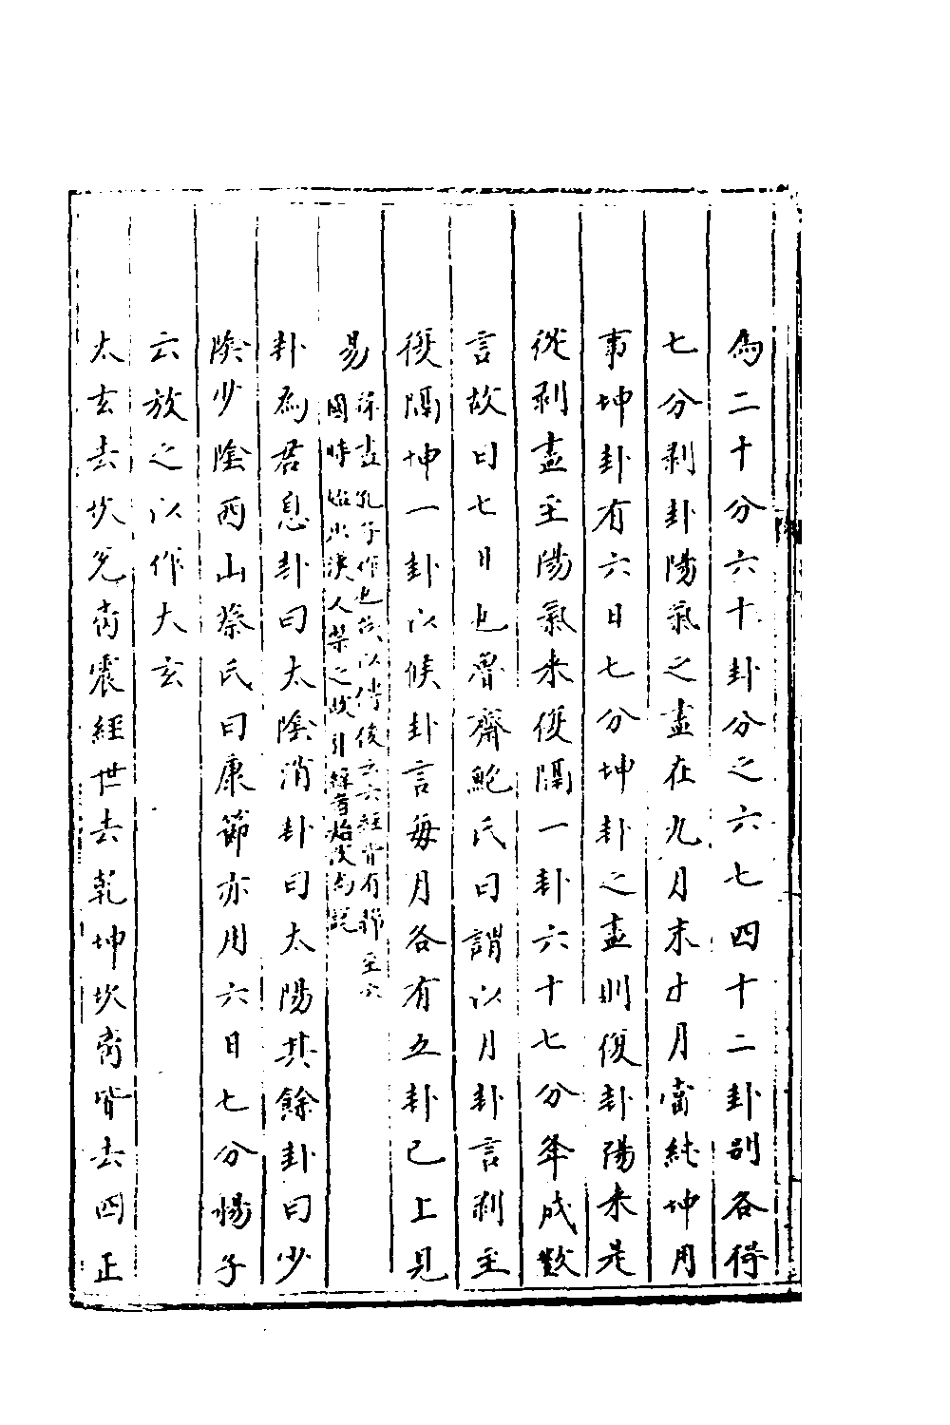 為二十分六十卦分之六七四十二卦別各得
七分剥卦陽氣之盡在九月末十月當純坤用
事坤卦有六日七分坤卦之盡則復卦陽来是
從剥盡至陽氣来復隔一卦六十七分舉成數
言故曰七日也魯齋鮑氏曰謂以月卦言剥至
復隔坤一卦以候卦言每月各有五卦已上見
易
緯書孔子作也故以傳後云六經皆有緯至六
國時始興漢人禁之故引緯者始改為説
卦為君息卦曰太陰消卦曰太陽其餘卦曰少
陰少陰西山蔡氏曰康節亦用六日七分楊子
云放之以作大玄
太玄去坎兌离震經世去乾坤坎离皆去四正